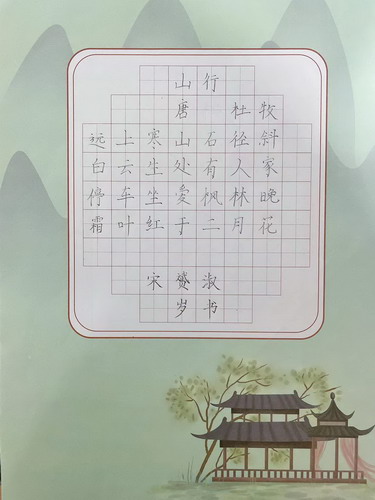 山行
唐 杜牧
远上寒山石径斜
白云生处有人家
停车坐爱枫林晚
霜叶红于二月花
宋赟淑
岁书